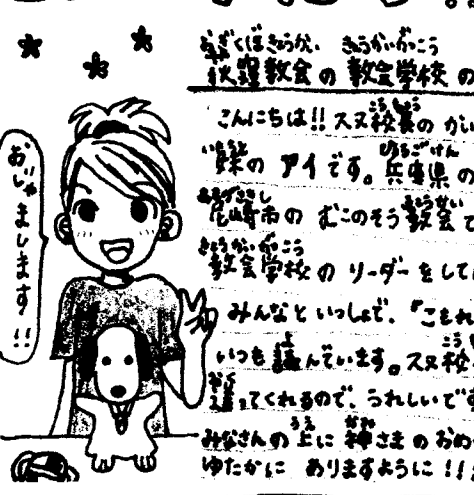 荻窪教会の教会学校の
こんにちは!! スヌ校長の
妹のアイです。兵庫県の
尼崎市のむこのそう教会で
教会学校のリーダーをして
みんなといっしょで、『こもれ
いつも読んでいます。スヌ校
送ってくれるので、うれしいです
みなさんの上に神さまの
ゆたかに ありますように!!
おじゃまします!!